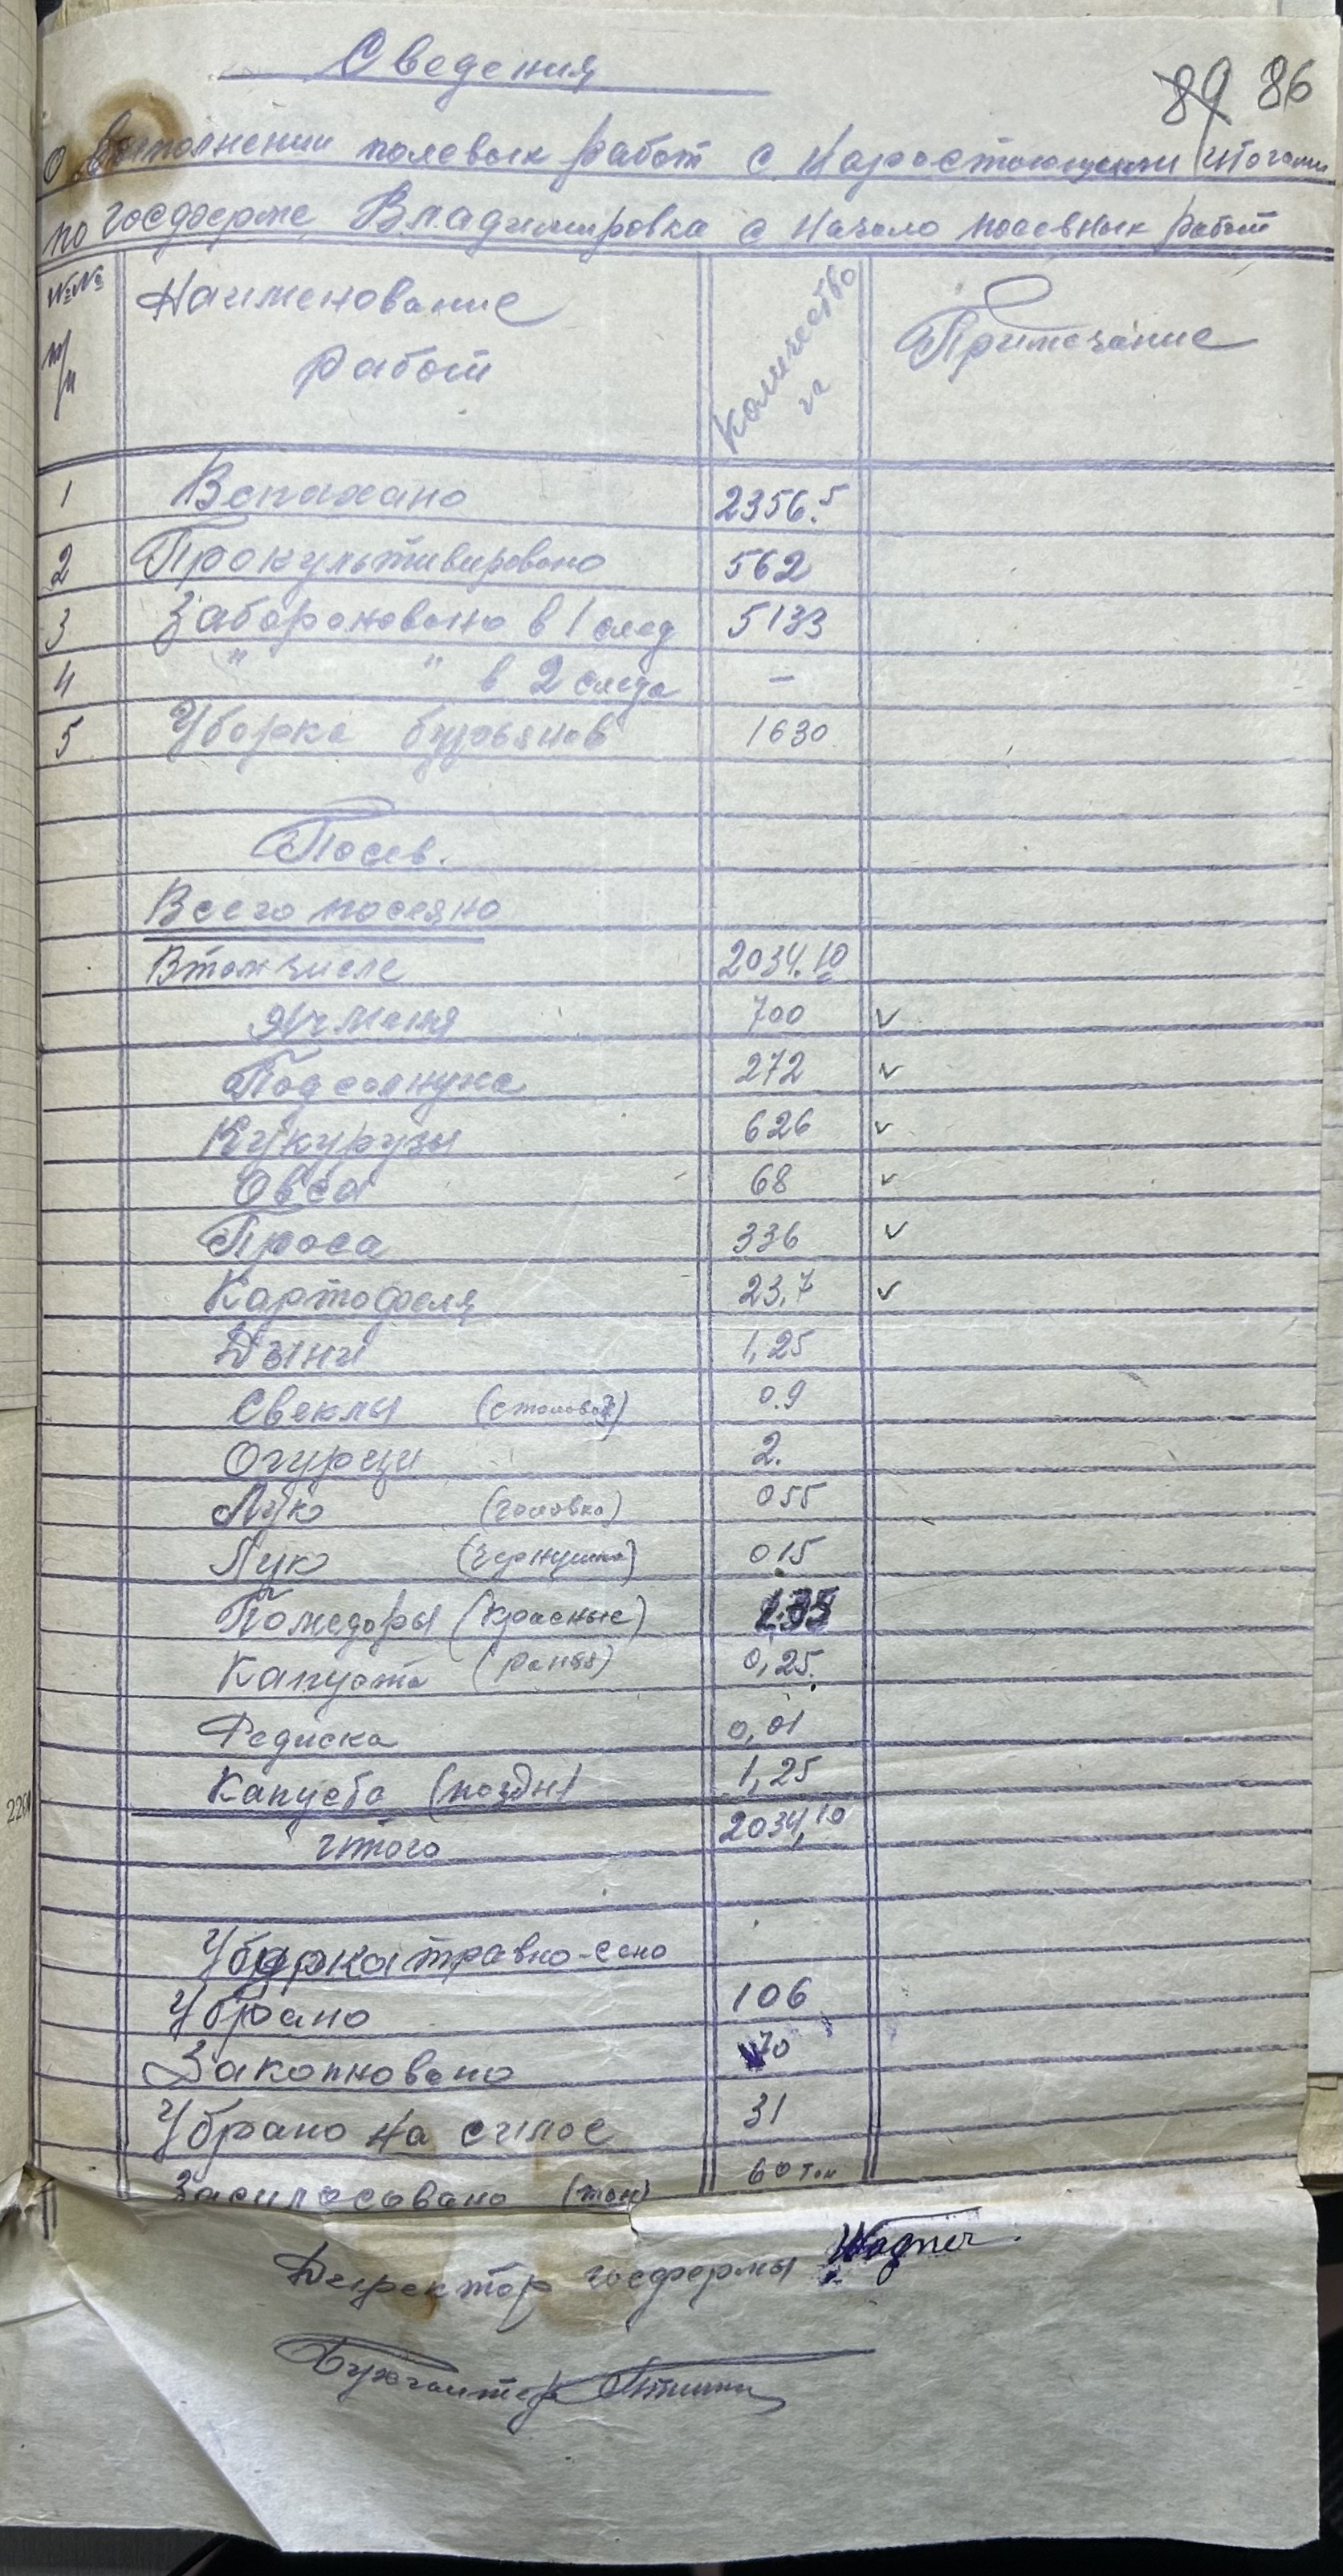 Сведения
89 86
О выполнении полевых работ с наростающими итогами
по госферме Владимировка с начало посевных работ
№№ п/п Наименование работ Количество га Примечание
1 Вспахано 2356.5
2 Прокультивировано 562
3 Забороновано в 1 след 5133
4 " " в 2 следа –
5 Уборка бурьянов 1630
Посев.
Всего посеяно
В том числе 2034.10
Ячменя 700 v
Подсолнуха 272 v
Кукурузы 626 v
Овса 68 v
Проса 336 v
Картофеля 23,7 v
Дыни 1,25
Свеклы (столовой) 0.9
Огурцы 2.
Лук (головка) 055
Лук (чернушка) 015
Помедоры (красные)
Капуста (рання) 0,25.
Редиска 0,01
Капуста (поздн) 1,25
итого 2034,10
Уборка травно-сено
Убрано 106
Закопновано 70
Убрано на силос 31
Засилосовано (тон) 60 тон
Директор госфермы Wagner.
Бухгалтер